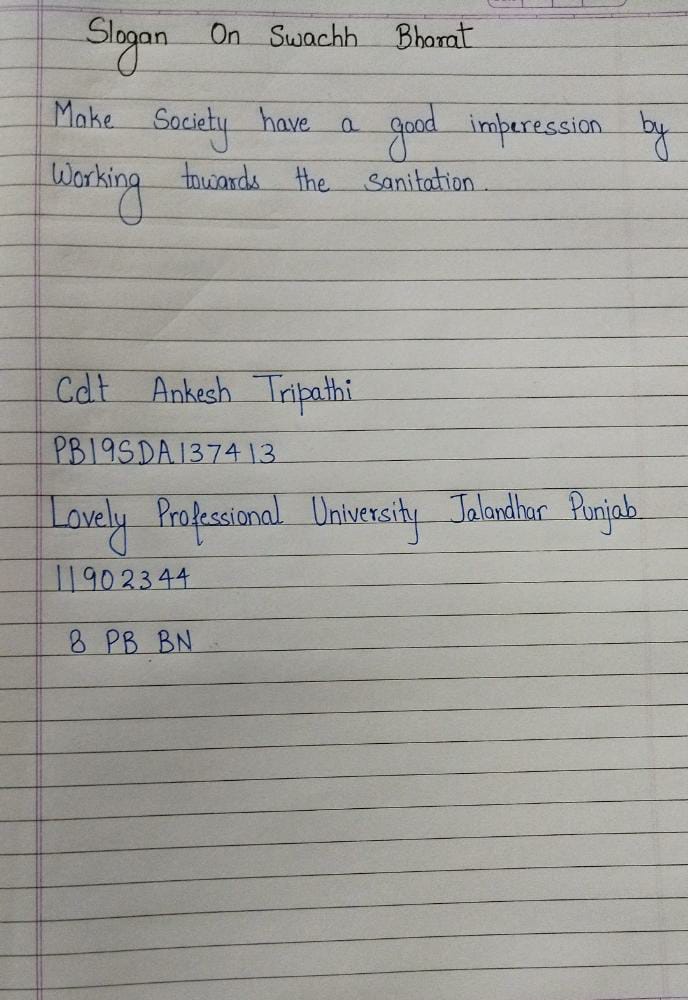 Slogan On Swachh Bharat
Make Society have a good imperession by
Working towards the sanitation.
Cdt Ankesh Tripathi
PB19SDA137413
Lovely Professional University Jalandhar Punjab
11902344
8 PB BN